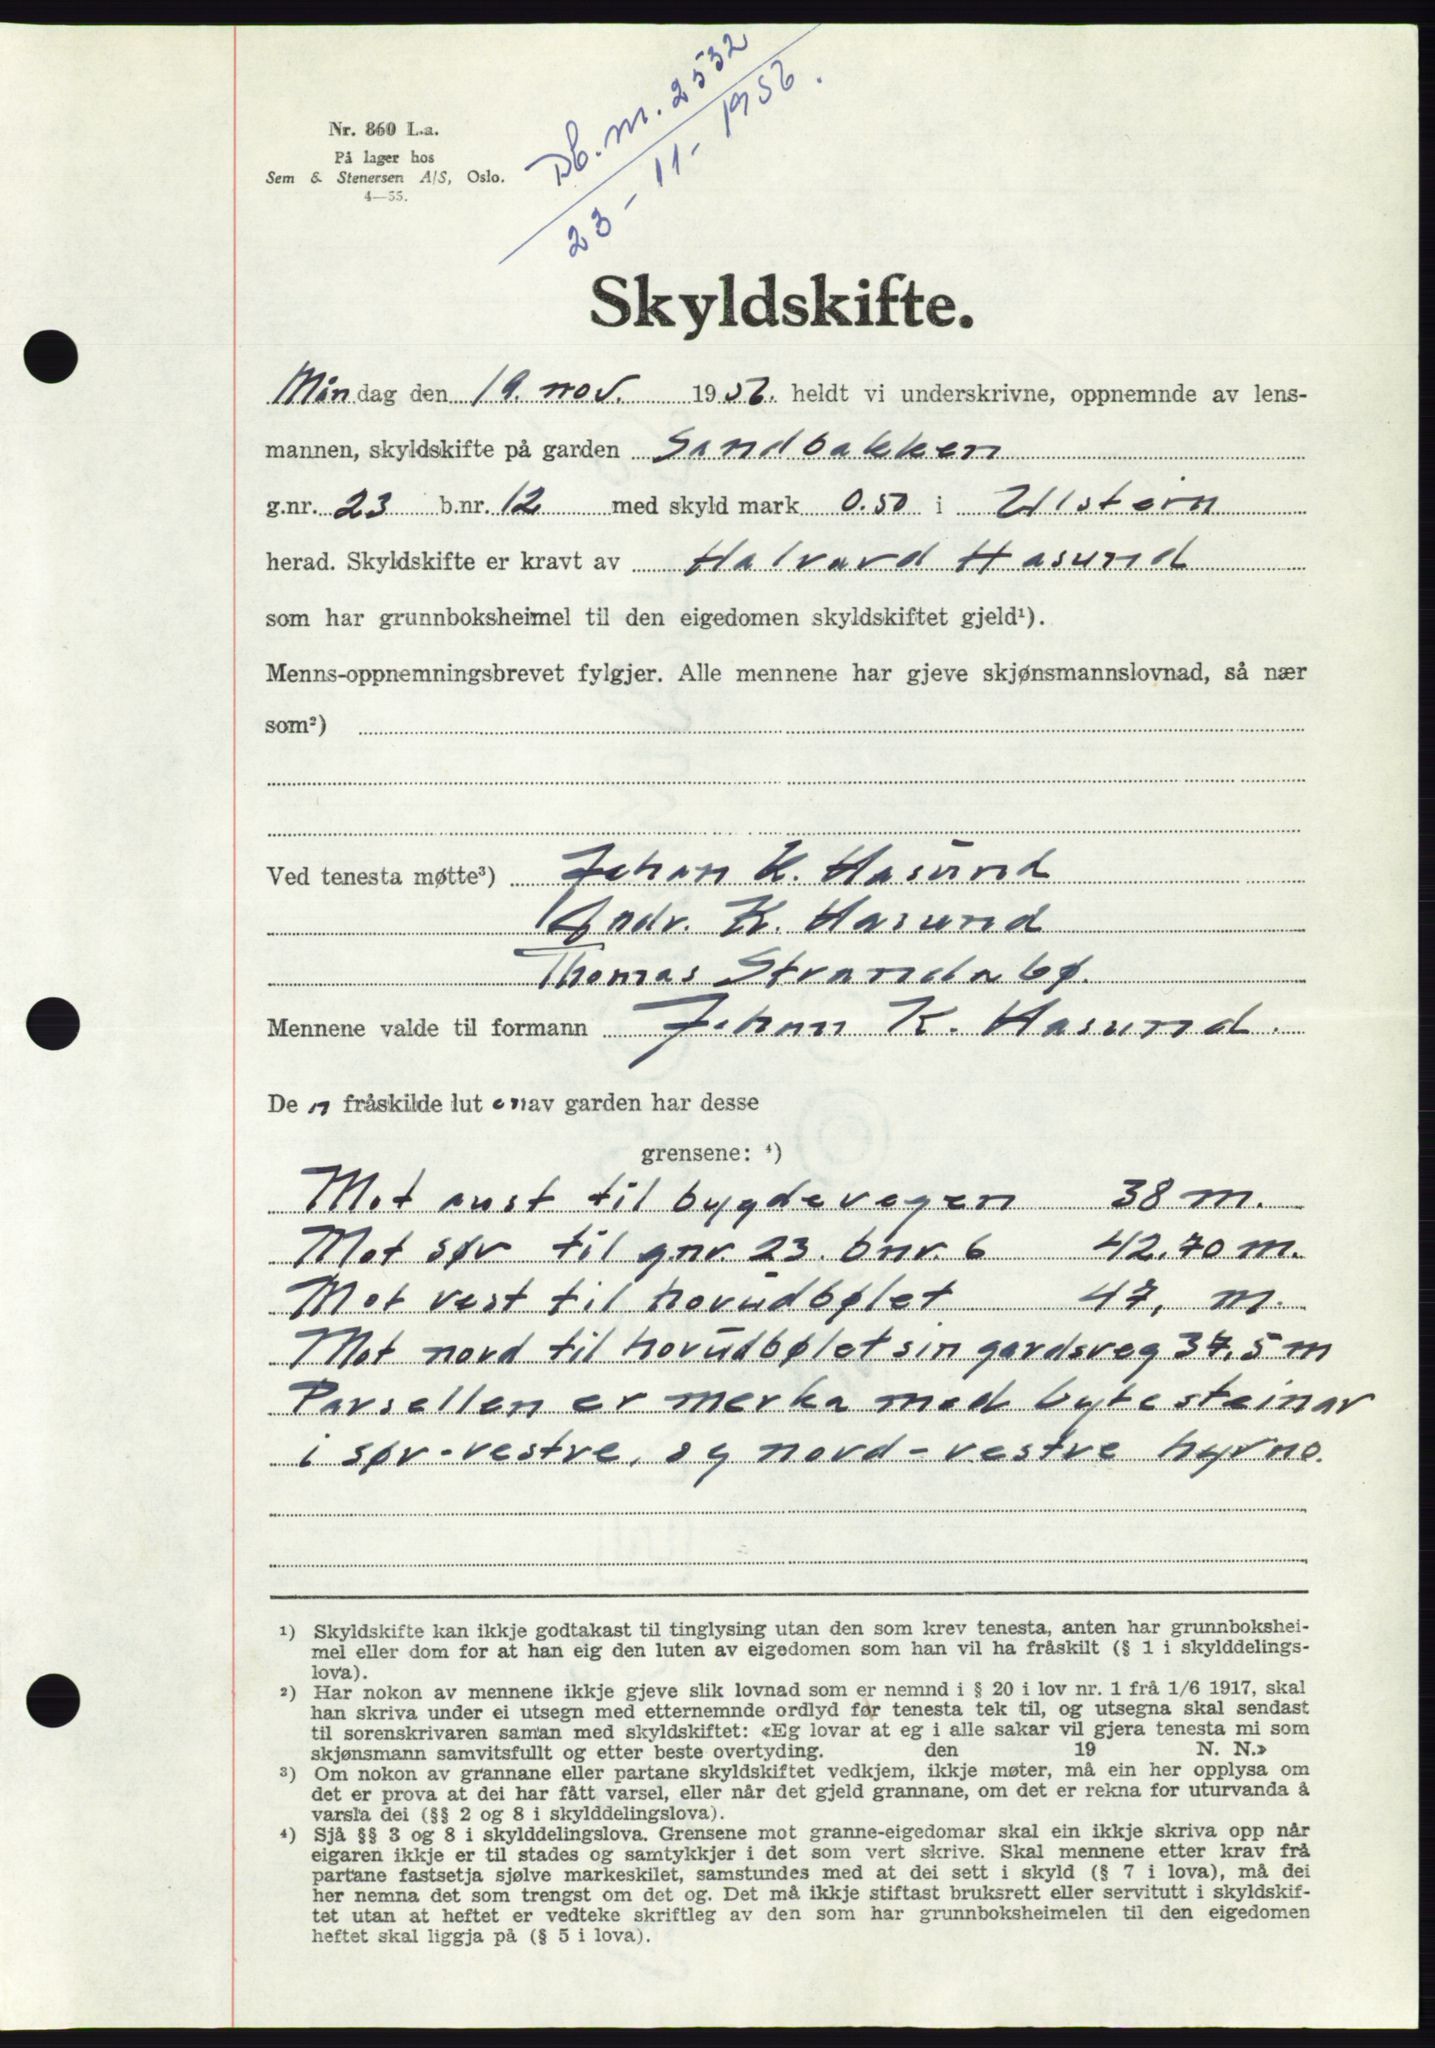 Db. nr. 2532
23-11-1956.
Nr. 860 L.a.
På lager hos
Sem & Stenersen A/S, Oslo.
4—55.
Skyldskifte.
Mån dag den 19. nov. 1956. heldt vi underskrivne, oppnemnde av lens-
mannen, skyldskifte på garden Sandbakken
g.nr. 23 b.nr. 12 med skyld mark 0.50 i Ulstein
herad. Skyldskifte er kravt av Halvard Hasund
som har grunnboksheimel til den eigedomen skyldskiftet gjeld¹).
Menns-oppnemningsbrevet fylgjer. Alle mennene har gjeve skjønsmannslovnad, så nær
som²)
Ved tenesta møtte³) Johan K. Hasund
Andr. K. Hasund
Thomas Strandabø.
Mennene valde til formann Johan K. Hasund.
De n fråskilde lut en av garden har desse
grensene: ⁴)
Mot aust til bygdevegen 38 m.
Mot sør til g.nr. 23. bnr. 6 42.70 m.
Mot vest til hovudbølet 47, m.
Mot nord til hovudbølet sin gardsveg 37,5 m
Parsellen er merka med bytesteinar
i sør-vestre, og nord-vestre hyrno.
¹) Skyldskifte kan ikkje godtakast til tinglysing utan den som krev tenesta, anten har grunnbokshei-
mel eller dom for at han eig den luten av eigedomen som han vil ha fråskilt (§ 1 i skylddelings-
lova).
²) Har nokon av mennene ikkje gjeve slik lovnad som er nemnd i § 20 i lov nr. 1 frå 1/6 1917, skal
han skriva under ei utsegn med etternemnde ordlyd før tenesta tek til, og utsegna skal sendast
til sorenskrivaren saman med skyldskiftet: «Eg lovar at eg i alle sakar vil gjera tenesta mi som
skjønsmann samvitsfullt og etter beste overtyding. den 19 N. N.»
³) Om nokon av grannane eller partane skyldskiftet vedkjem, ikkje møter, må ein her opplysa om
det er prova at dei har fått varsel, eller når det gjeld grannane, om det er rekna for uturvanda å
varsla dei (§§ 2 og 8 i skylddelingslova).
⁴) Sjå §§ 3 og 8 i skylddelingslova. Grensene mot granne-eigedomar skal ein ikkje skriva opp når
eigaren ikkje er til stades og samtykkjer i det som vert skrive. Skal mennene etter krav frå
partane fastsetja sjølve markeskilet, samstundes med at dei sett i skyld (§ 7 i lova), må dei
her nemna det som trengst om det og. Det må ikkje stiftast bruksrett eller servitutt i skyldskif-
tet utan at heftet er vedteke skriftleg av den som har grunnboksheimelen til den eigedomen
heftet skal liggja på (§ 5 i lova).